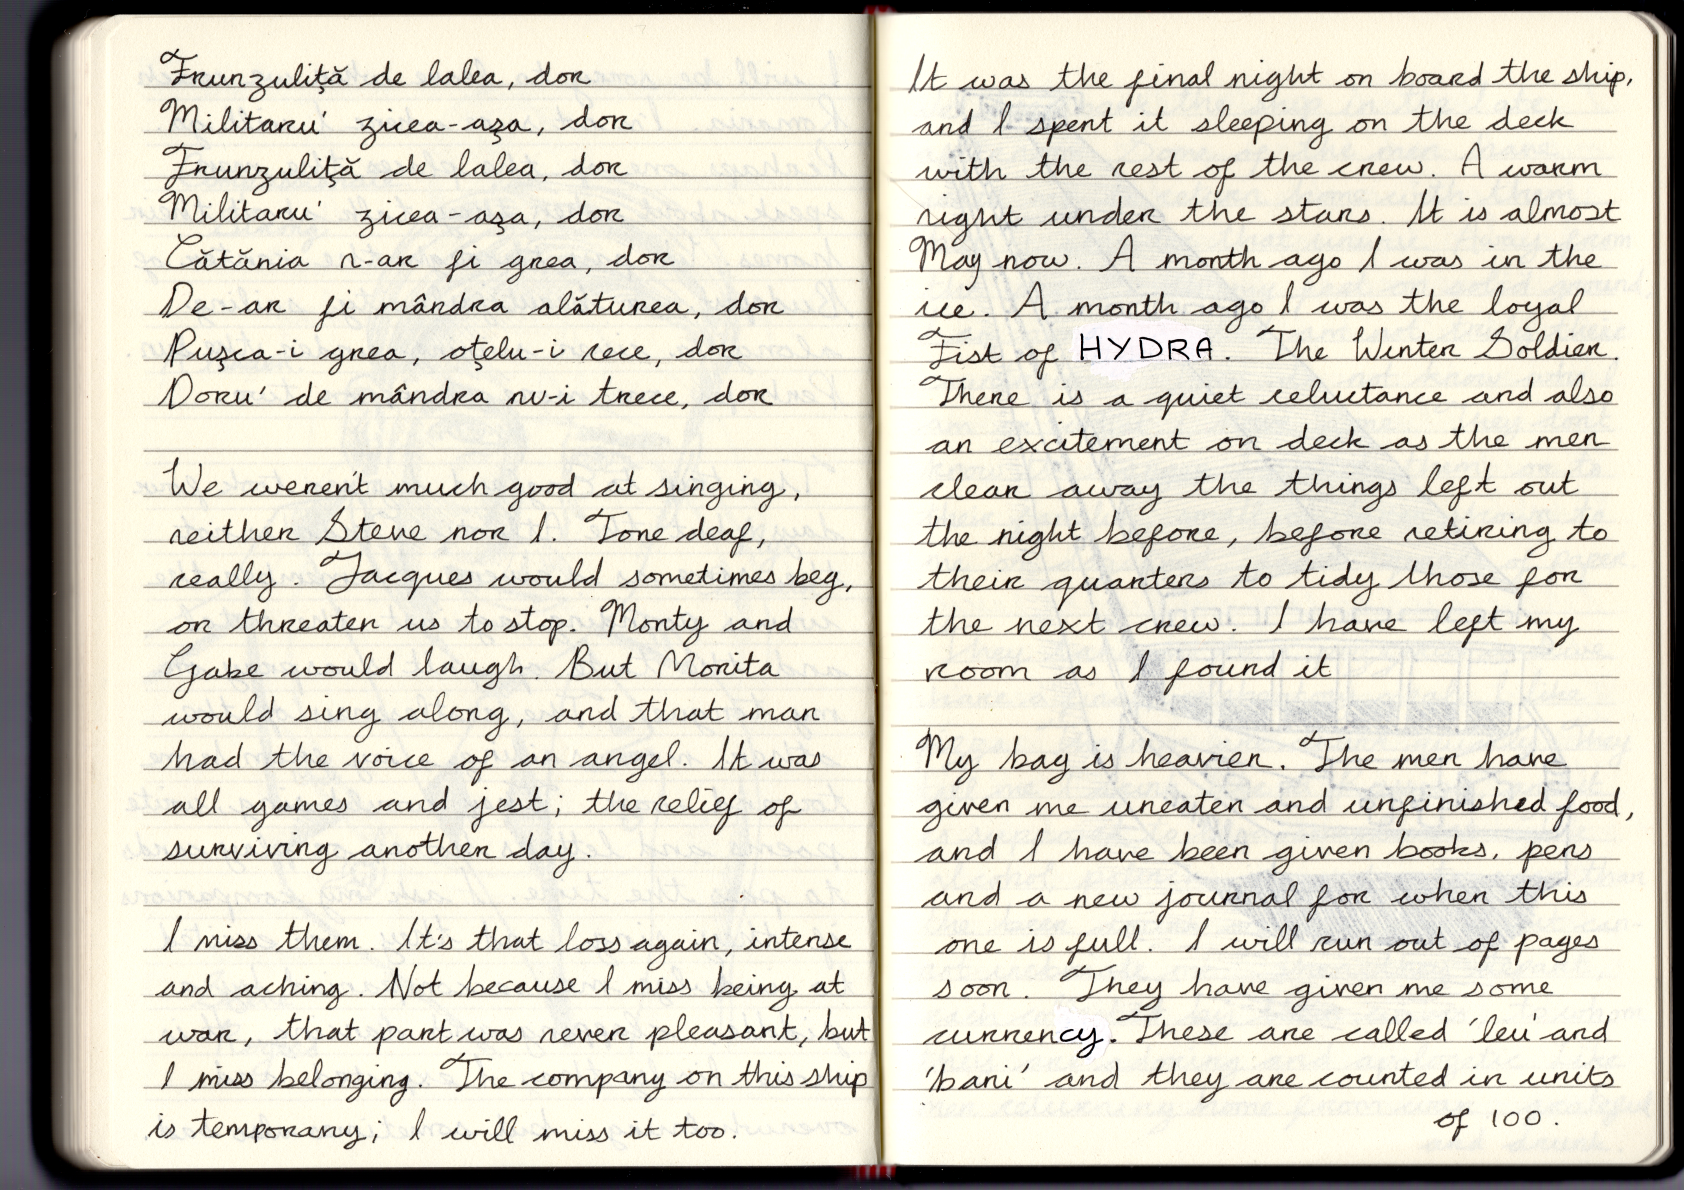 Frunzuliţă de lalea, dor
Militaru' zicea-aşa, dor
Frunzuliţă de lalea, dor
Militaru' zicea-aşa, dor
Cătănia n-ar fi grea, dor
De-ar fi mândra alăturea, dor
Puşca-i grea, oţelu-i rece, dor
Doru' de mândra nu-i trece, dor
We weren't much good at singing,
neither Steve nor I. Tone deaf,
really. Jacques would sometimes beg,
or threaten us to stop. Monty and
Gabe would laugh. But Morita
would sing along, and that man
had the voice of an angel. It was
all games and jest; the relief of
surviving another day.
I miss them. It's that loss again, intense
and aching. Not because I miss being at
war, that part was never pleasant, but
I miss belonging. The company on this ship
is temporary; I will miss it too.
It was the final night on board the ship,
and I spent it sleeping on the deck
with the rest of the crew. A warm
night under the stars. It is almost
May now. A month ago I was in the
ice. A month ago I was the loyal
Fist of HYDRA. The Winter Soldier.
There is a quiet reluctance and also
an excitement on deck as the men
clear away the things left out
the night before, before retiring to
their quarters to tidy those for
the next crew. I have left my
room as I found it
My bag is heavier. The men have
given me uneaten and unfinished food,
and I have been given books, pens
and a new journal for when this
one is full. I will run out of pages
soon. They have given me some
currency. These are called 'leu' and
'bani' and they are counted in units
of 100.